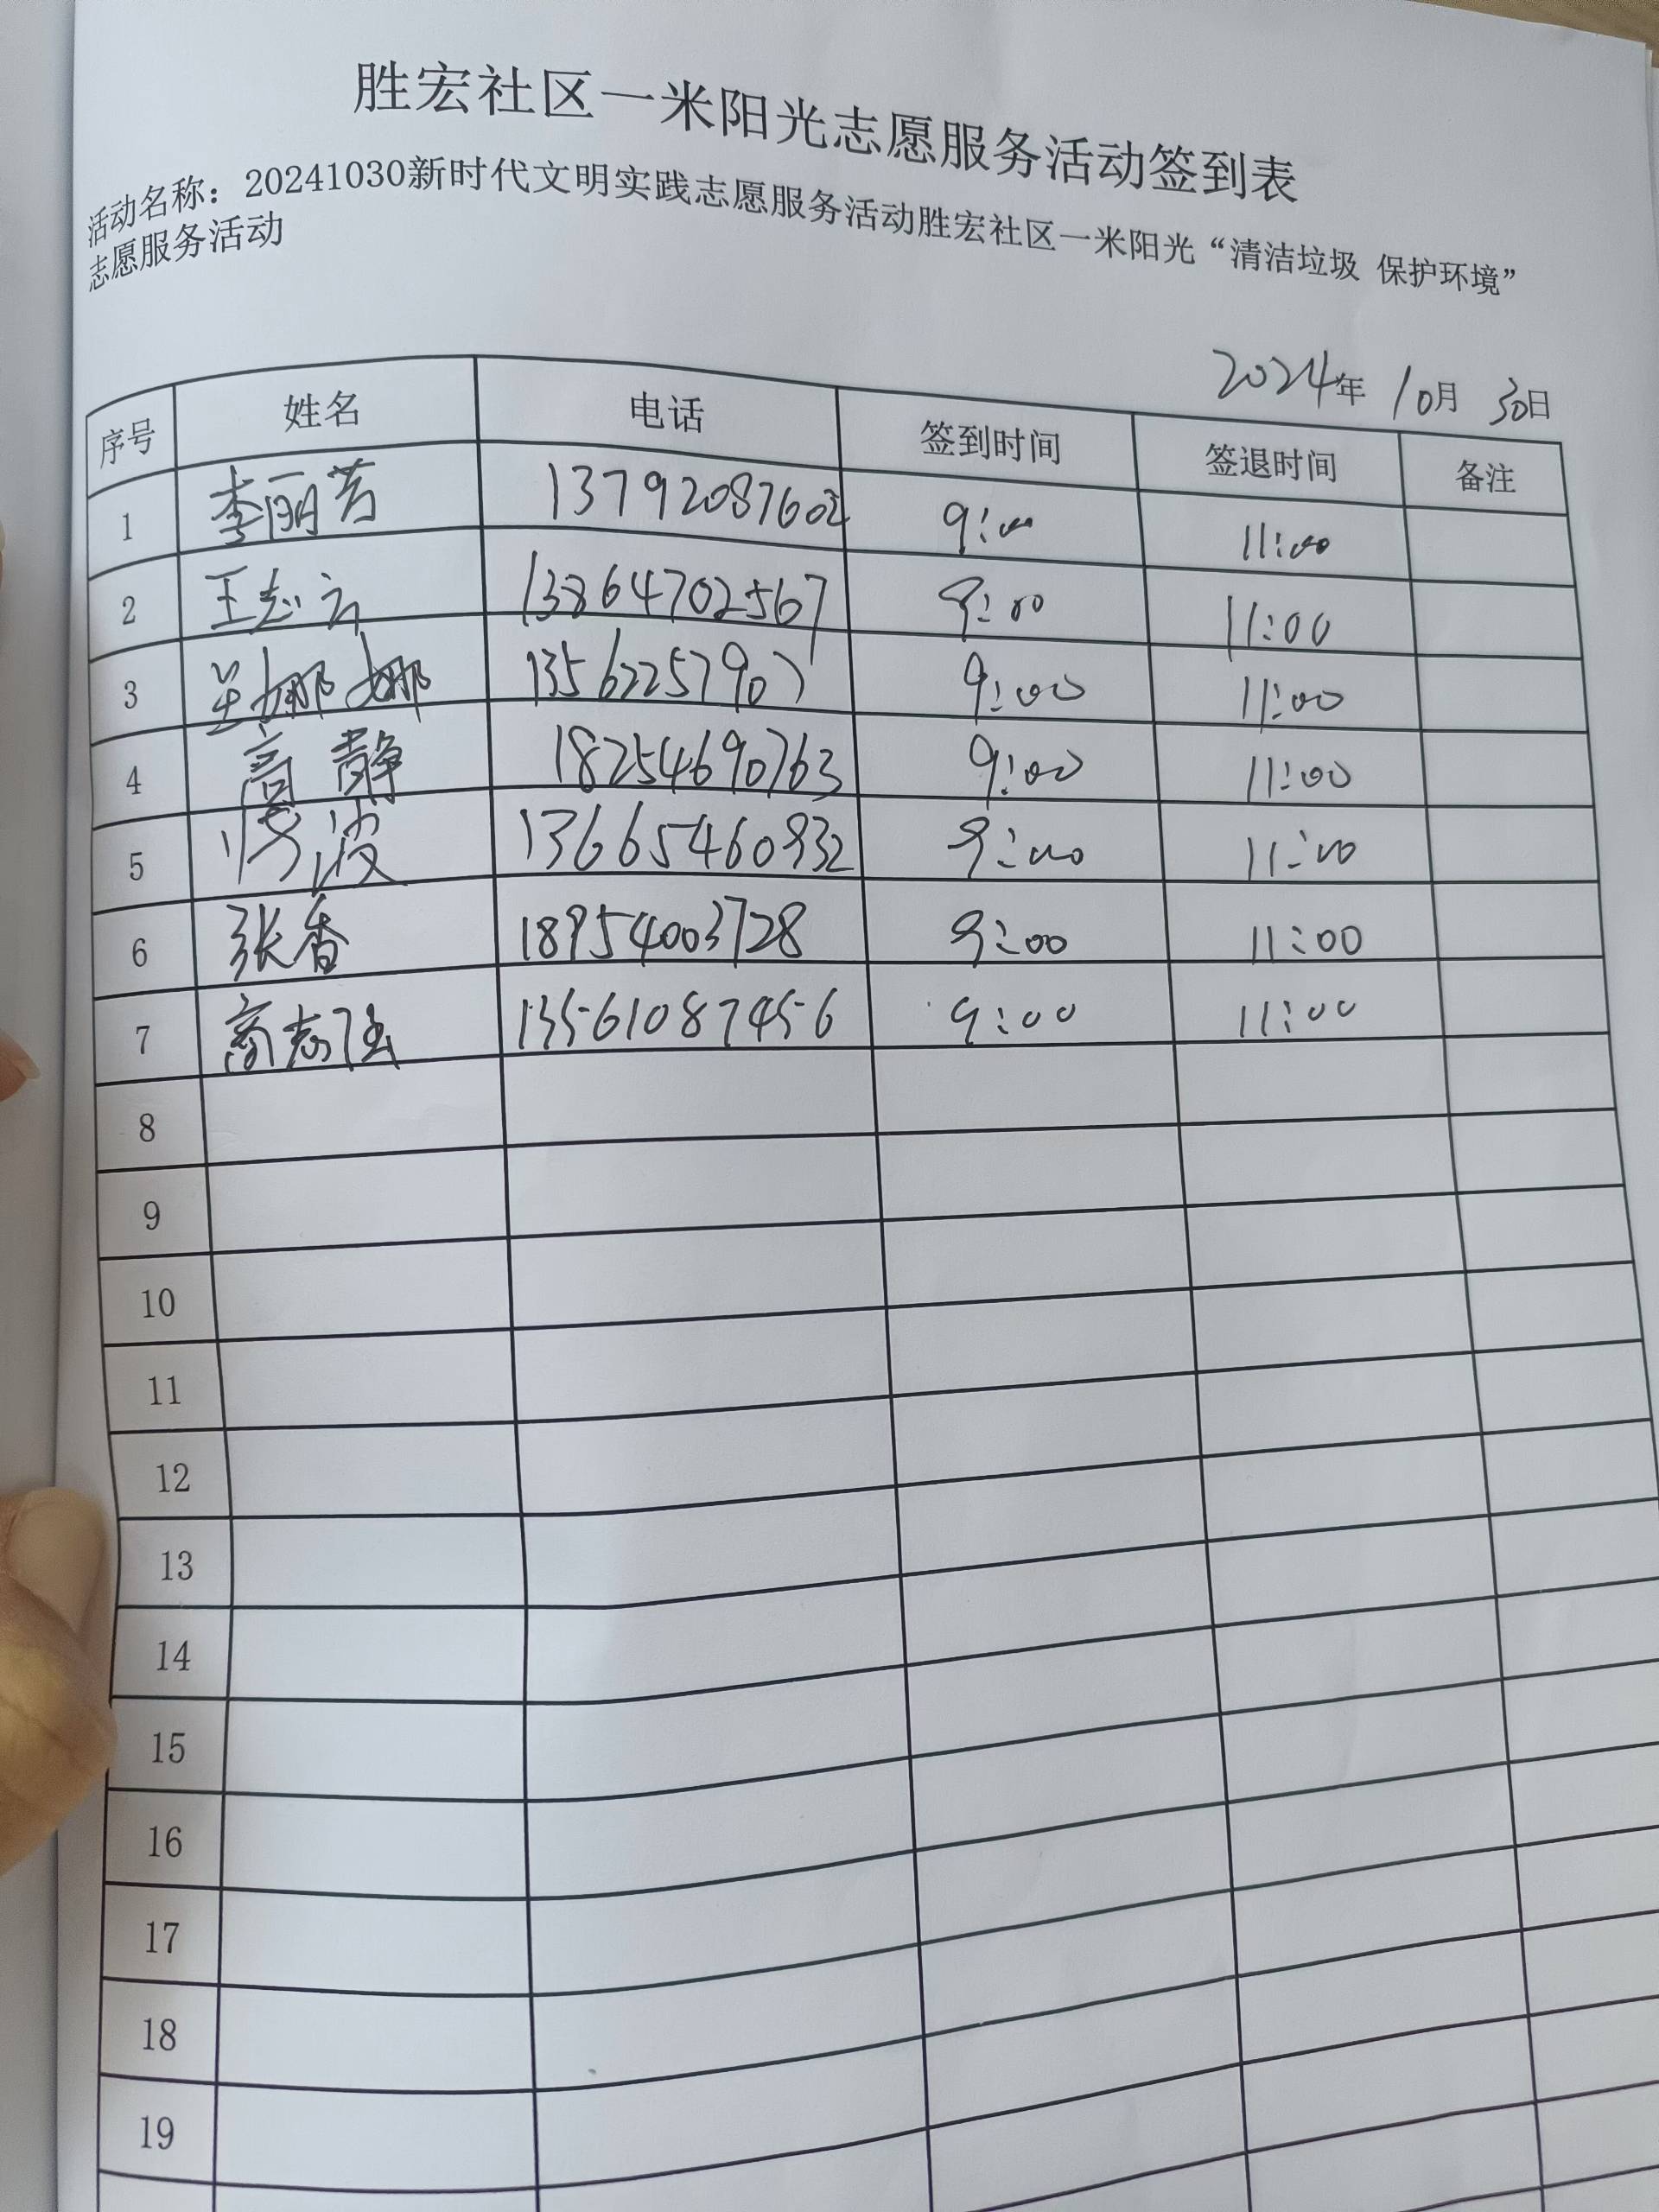 胜宏社区一米阳光志愿服务活动签到表
活动名称：20241030新时代文明实践志愿服务活动胜宏社区一米阳光“清洁垃圾 保护环境”
志愿服务活动
2024年 10月 30日
序号 姓名 电话 签到时间 签退时间 备注
1 李丽芳 9:00 11:00
2 王志云 13864702567 9:00 11:00
3 娜娜 13562257907 9:00 11:00
4 高静 18254690763 9:00 11:00
5 波 13665460932 9:00 11:00
6 张香 18954003728 9:00 11:00
7 商志强 13561087456 9:00 11:00
8
9
10
11
12
13
14
15
16
17
18
19